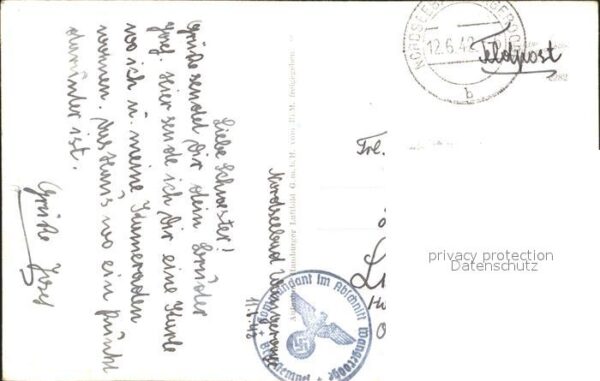 Nordseebad Wangerooge
11.6.42
Liebe Schwester!
Grüße sendet Dir dein Bruder
Josef. Hier sende ich Dir eine Karte
wo ich u. meine Kameraden
wohnen. Das Haus wo ein Punkt
darunter ist.
Grüße Josef
Hamburger Luftbild G.m.b.H. vom RLM. freigegeben
NORDSEEBAD WANGEROOGE
12.6.42
b
Feldpost
Frl.
Kommandant im Abschnitt Wangerooge
Briefstempel
privacy protection
Datenschutz